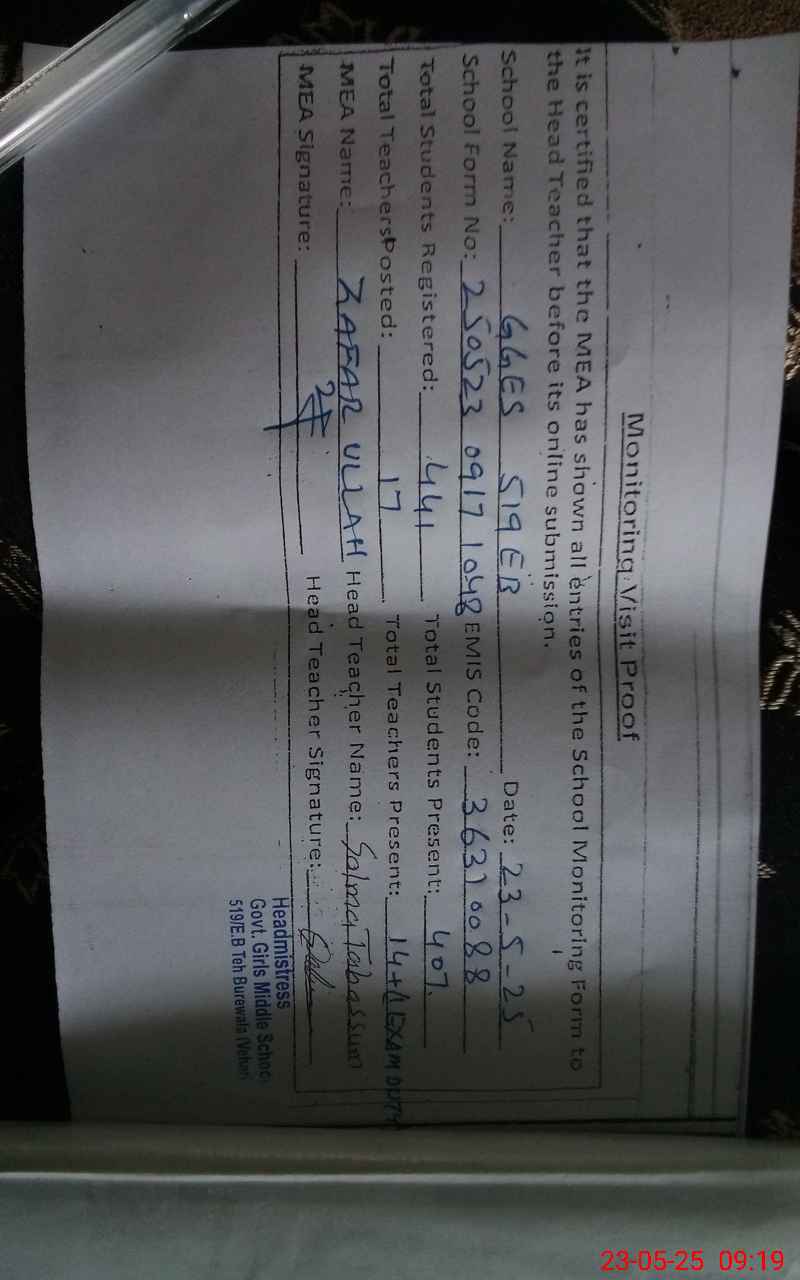 Monitoring Visit Proof
It is certified that the MEA has shown all entries of the School Monitoring Form to
the Head Teacher before its online submission.
School Name: GGES 519 EB Date: 23-5-25
School Form No: 250523 0917 1048 EMIS Code: 36310088
Total Students Registered: 441 Total Students Present: 407
Total Teachers Posted: 17 Total Teachers Present: 14+(1 EXAM DUTY
MEA Name: ZAFAR ULLAH Head Teacher Name: Salma Tabassum
MEA Signature: Head Teacher Signature:
Headmistress
Govt. Girls Middle School
519/E.B Teh Burewala (Vehari
23-05-25 09:19